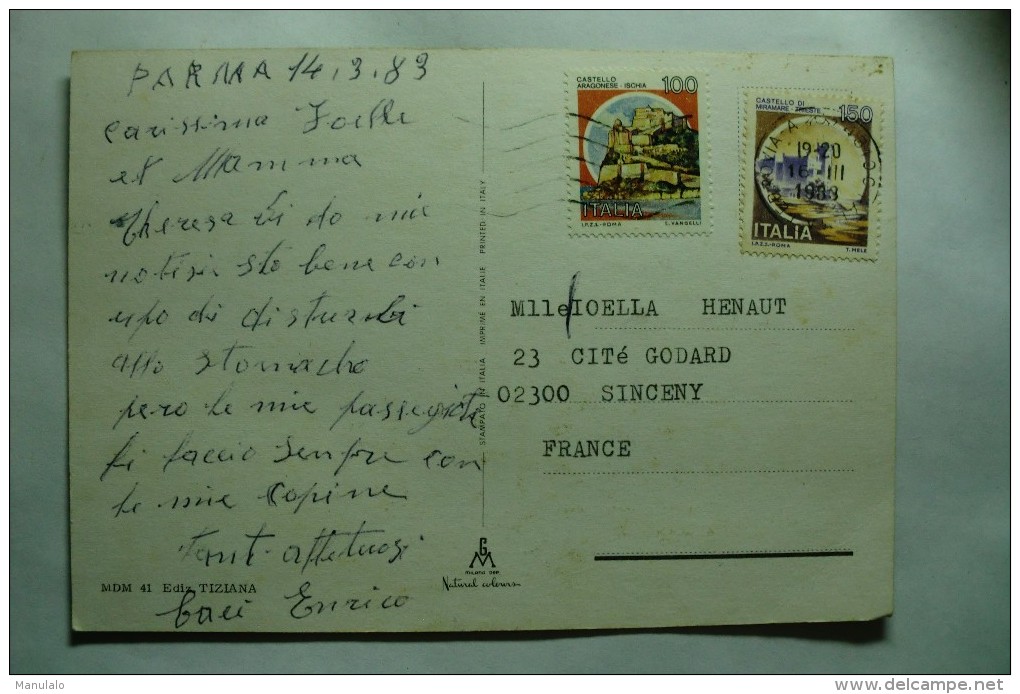 PARMA 14.3.83
Carissima Joelle
et Mamma
theresa Vi do mie
notizia sto bene con
upo di disturbi
allo stomacho
pero le mie passegiate
li faccio sempre con
le mie copine
tant affettuosi
baci Enrico
MDM 41 Ediz. TIZIANA
STAMPATO IN ITALIA IMPRIME EN ITALIE PRINTED IN ITALY
GM
Natural colours
CASTELLO
ARAGONESE - ISCHIA
100
ITALIA
I.P.Z.S. - ROMA
CASTELLO DI
MIRAMARE - TRIESTE
150
19-20
16 III
1983
ITALIA
I.P.Z.S. - ROMA T. MELE
Mlle IOELLA HENAUT
23 CITé GODARD
02300 SINCENY
FRANCE
Manulalo
delcampe.net